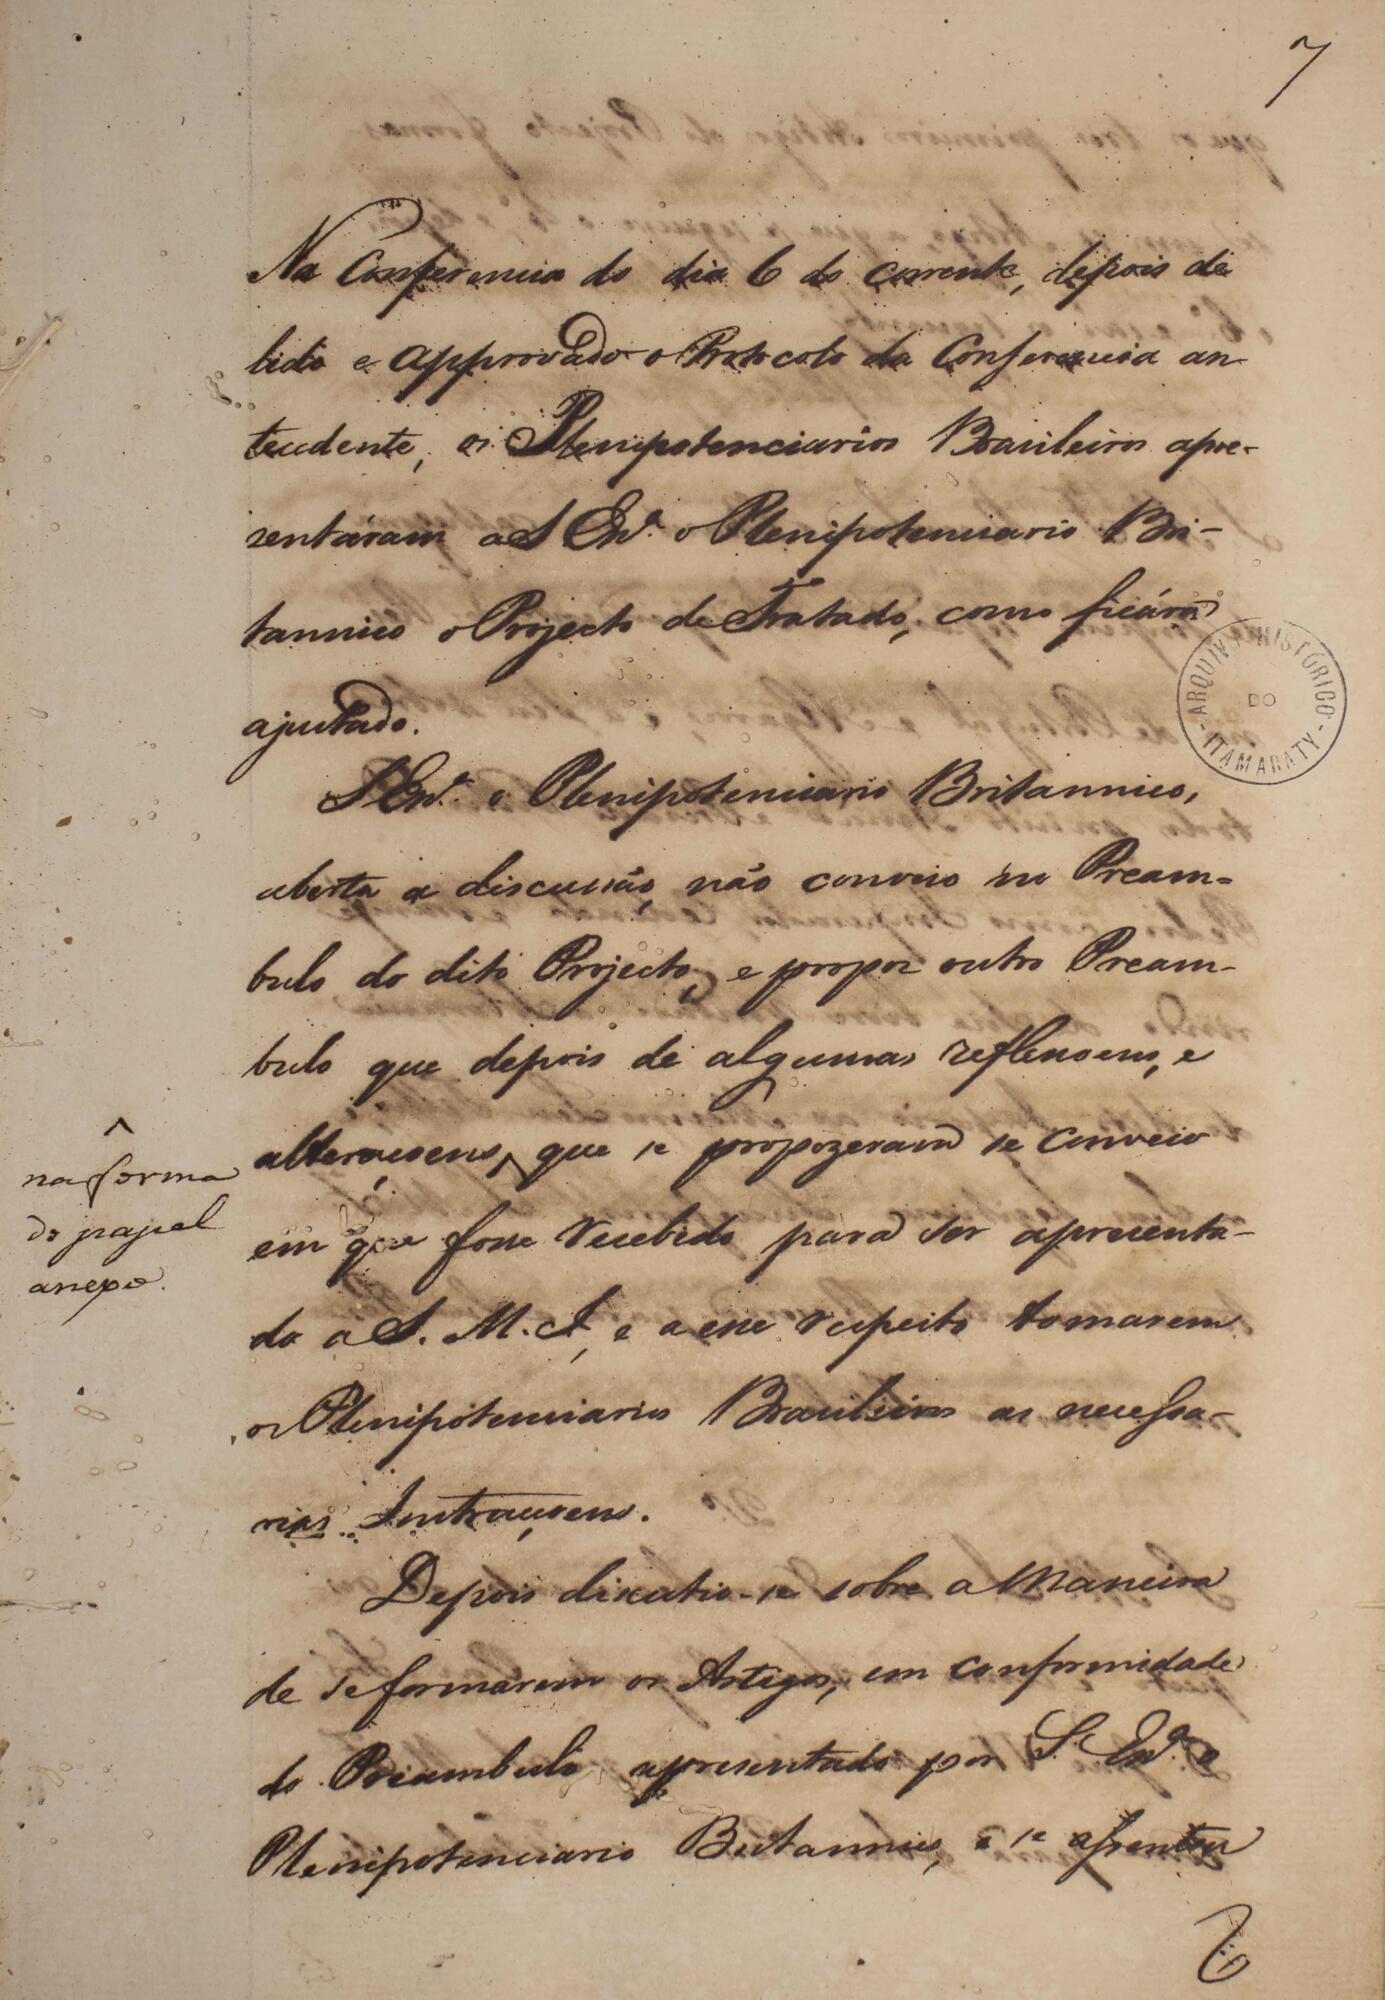 7
Na Conferencia do dia 6 do corrente, depois de
lido e approvado o Protocolo da Conferencia an-
tecedente, os Plenipotenciarios Brasileiros apre-
zentáram a S Exª. o Plenipotenciario Bri-
tannico o Projecto de Tratado, como ficára
ajustado.
S Exª. o Plenipotenciario Britannico,
aberta a discussão, não conveio no Pream-
bulo do dito Projecto, e propoz outro Pream-
bulo que depois de algumas reflexoens, e
alteraçoens, que se propozeram se conveio
^
na forma
do papel
anexo.
em que fosse recebido para ser apresenta-
do a S. M. I, e a esse respeito tomarem
os Plenipotenciarios Brasileiros as necessa-
rias Instrucçoens.
Depois discutio-se sobre a maneira
de se formarem os Artigos, em conformidade
do Preambulo apresentado por S. Exª. o
Plenipotenciario Britannico, e se assentou
ARQUIVO HISTÓRICO
DO
- ITAMARATY -